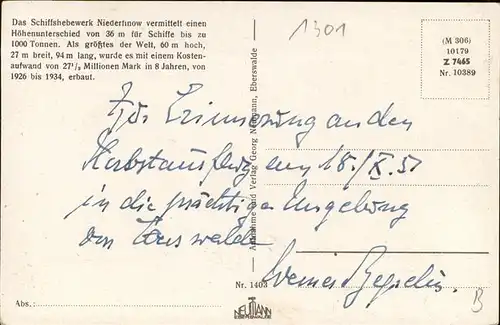 Das Schiffshebewerk Niederfinow vermittelt einen
Höhenunterschied von 36 m für Schiffe bis zu
1000 Tonnen. Als größtes der Welt, 60 m hoch,
27 m breit, 94 m lang, wurde es mit einem Kosten-
aufwand von 27¹/₂ Millionen Mark in 8 Jahren, von
1926 bis 1934, erbaut.
1301
(M 306)
10179
Z 7465
Nr. 10389
Zur Erinnerung an den
Herbstausflug am 18./X.51
in die prächtige Umgebung
von Eberswalde
Werner
Aufnahme und Verlag Georg Neumann, Eberswalde
Nr. 1403
NEUMANN
EBERSWALDE
Abs.:
B